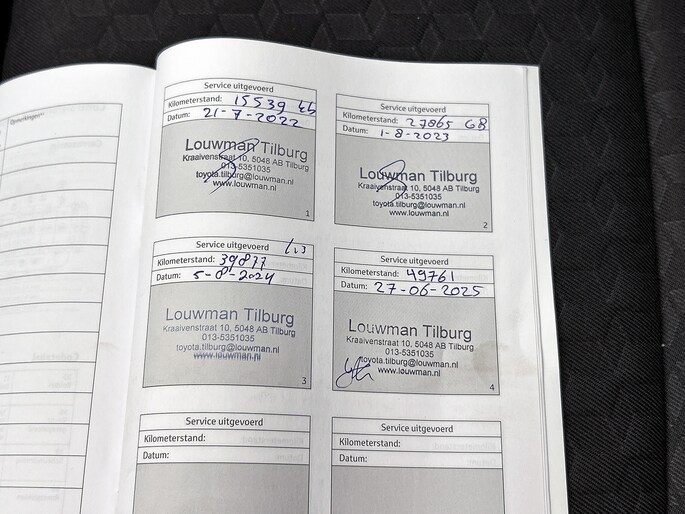 Opmerkingen
Service uitgevoerd
Kilometerstand: 15539
Datum: 21-7-2022
Louwman Tilburg
Kraaivenstraat 10, 5048 AB Tilburg
013-5351035
toyota.tilburg@louwman.nl
www.louwman.nl
1
Service uitgevoerd
Kilometerstand: 27865 GB
Datum: 1-8-2023
Louwman Tilburg
Kraaivenstraat 10, 5048 AB Tilburg
013-5351035
toyota.tilburg@louwman.nl
www.louwman.nl
2
Service uitgevoerd
Kilometerstand: 39877
Datum: 5-8-2024
Louwman Tilburg
Kraaivenstraat 10, 5048 AB Tilburg
013-5351035
toyota.tilburg@louwman.nl
www.louwman.nl
3
Service uitgevoerd
Kilometerstand: 49761
Datum: 27-06-2025
Louwman Tilburg
Kraaivenstraat 10, 5048 AB Tilburg
013-5351035
toyota.tilburg@louwman.nl
www.louwman.nl
4
Service uitgevoerd
Kilometerstand:
Datum:
Service uitgevoerd
Kilometerstand:
Datum: